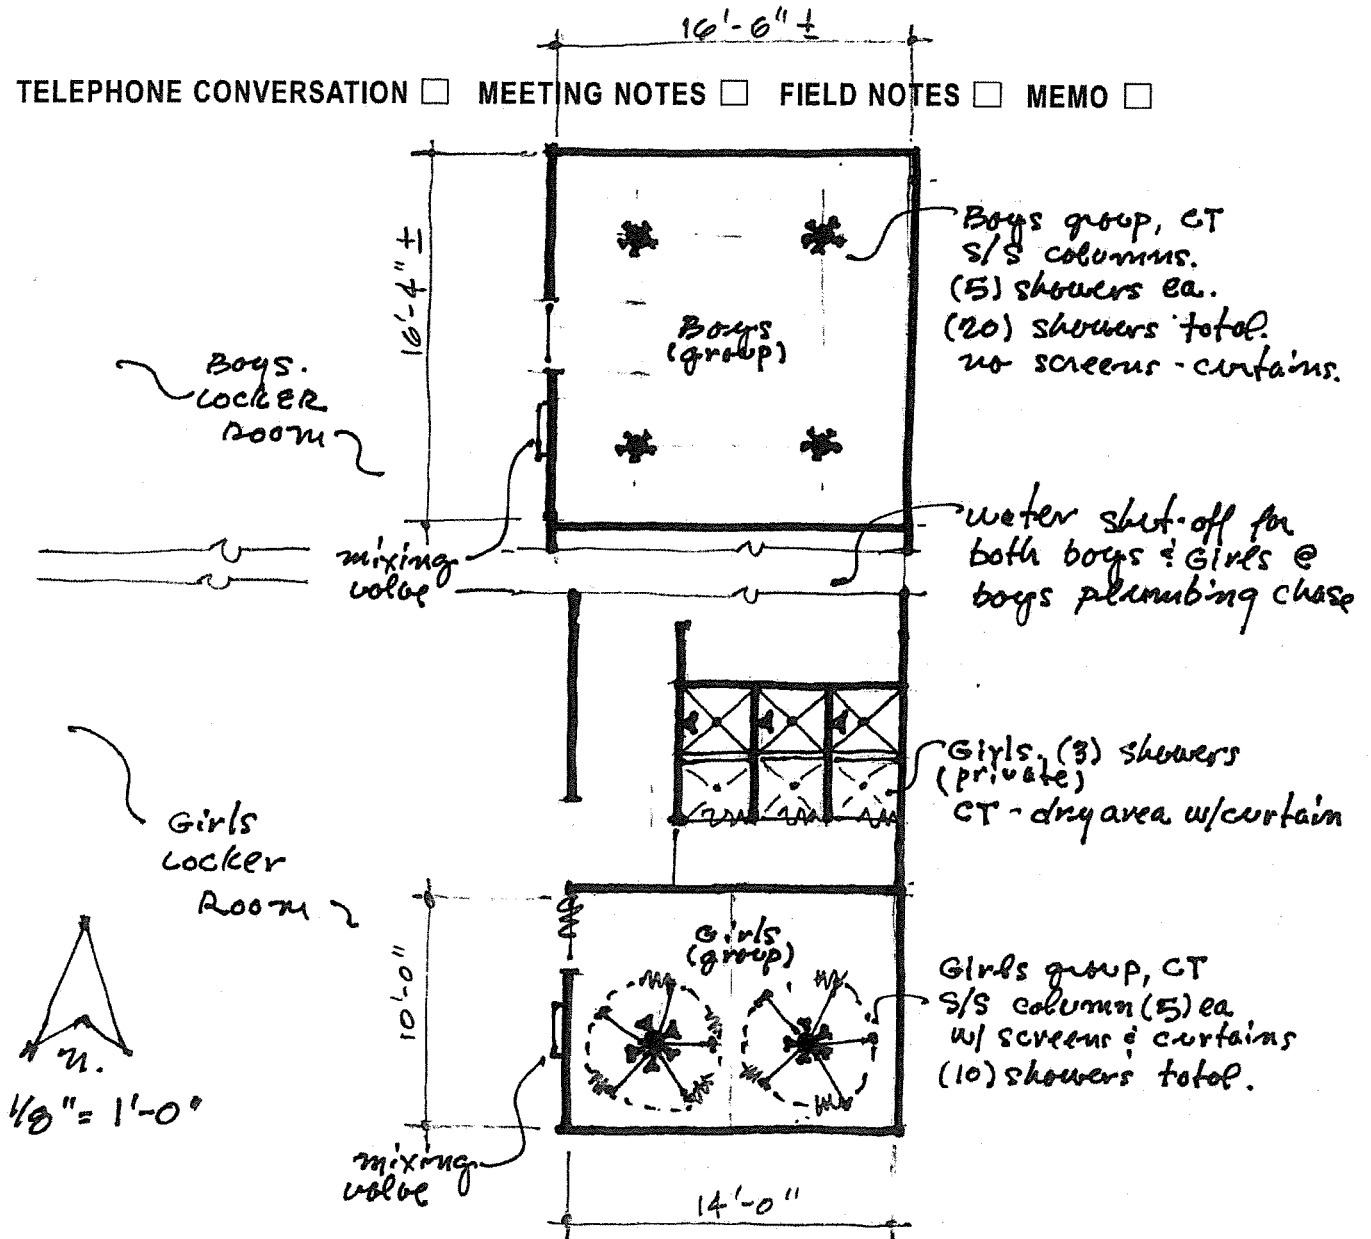 16'-6" ±
TELEPHONE CONVERSATION ☐ MEETING NOTES ☐ FIELD NOTES ☐ MEMO ☐
16'-4" ±
Boys group, CT
S/S columns.
(5) showers ea.
(20) showers total.
no screens - curtains.
Boys
(group)
Boys.
LOCKER
ROOM
mixing
valve
water shut-off for
both boys & Girls @
boys plumbing chase
Girls. (3) showers
(private)
CT - dry area w/curtain
Girls
Locker
Room
Girls
(group)
10'-0"
Girls group, CT
S/S column (5) ea
w/ screens & curtains
(10) showers total.
n.
1/8" = 1'-0"
mixing
valve
14'-0"